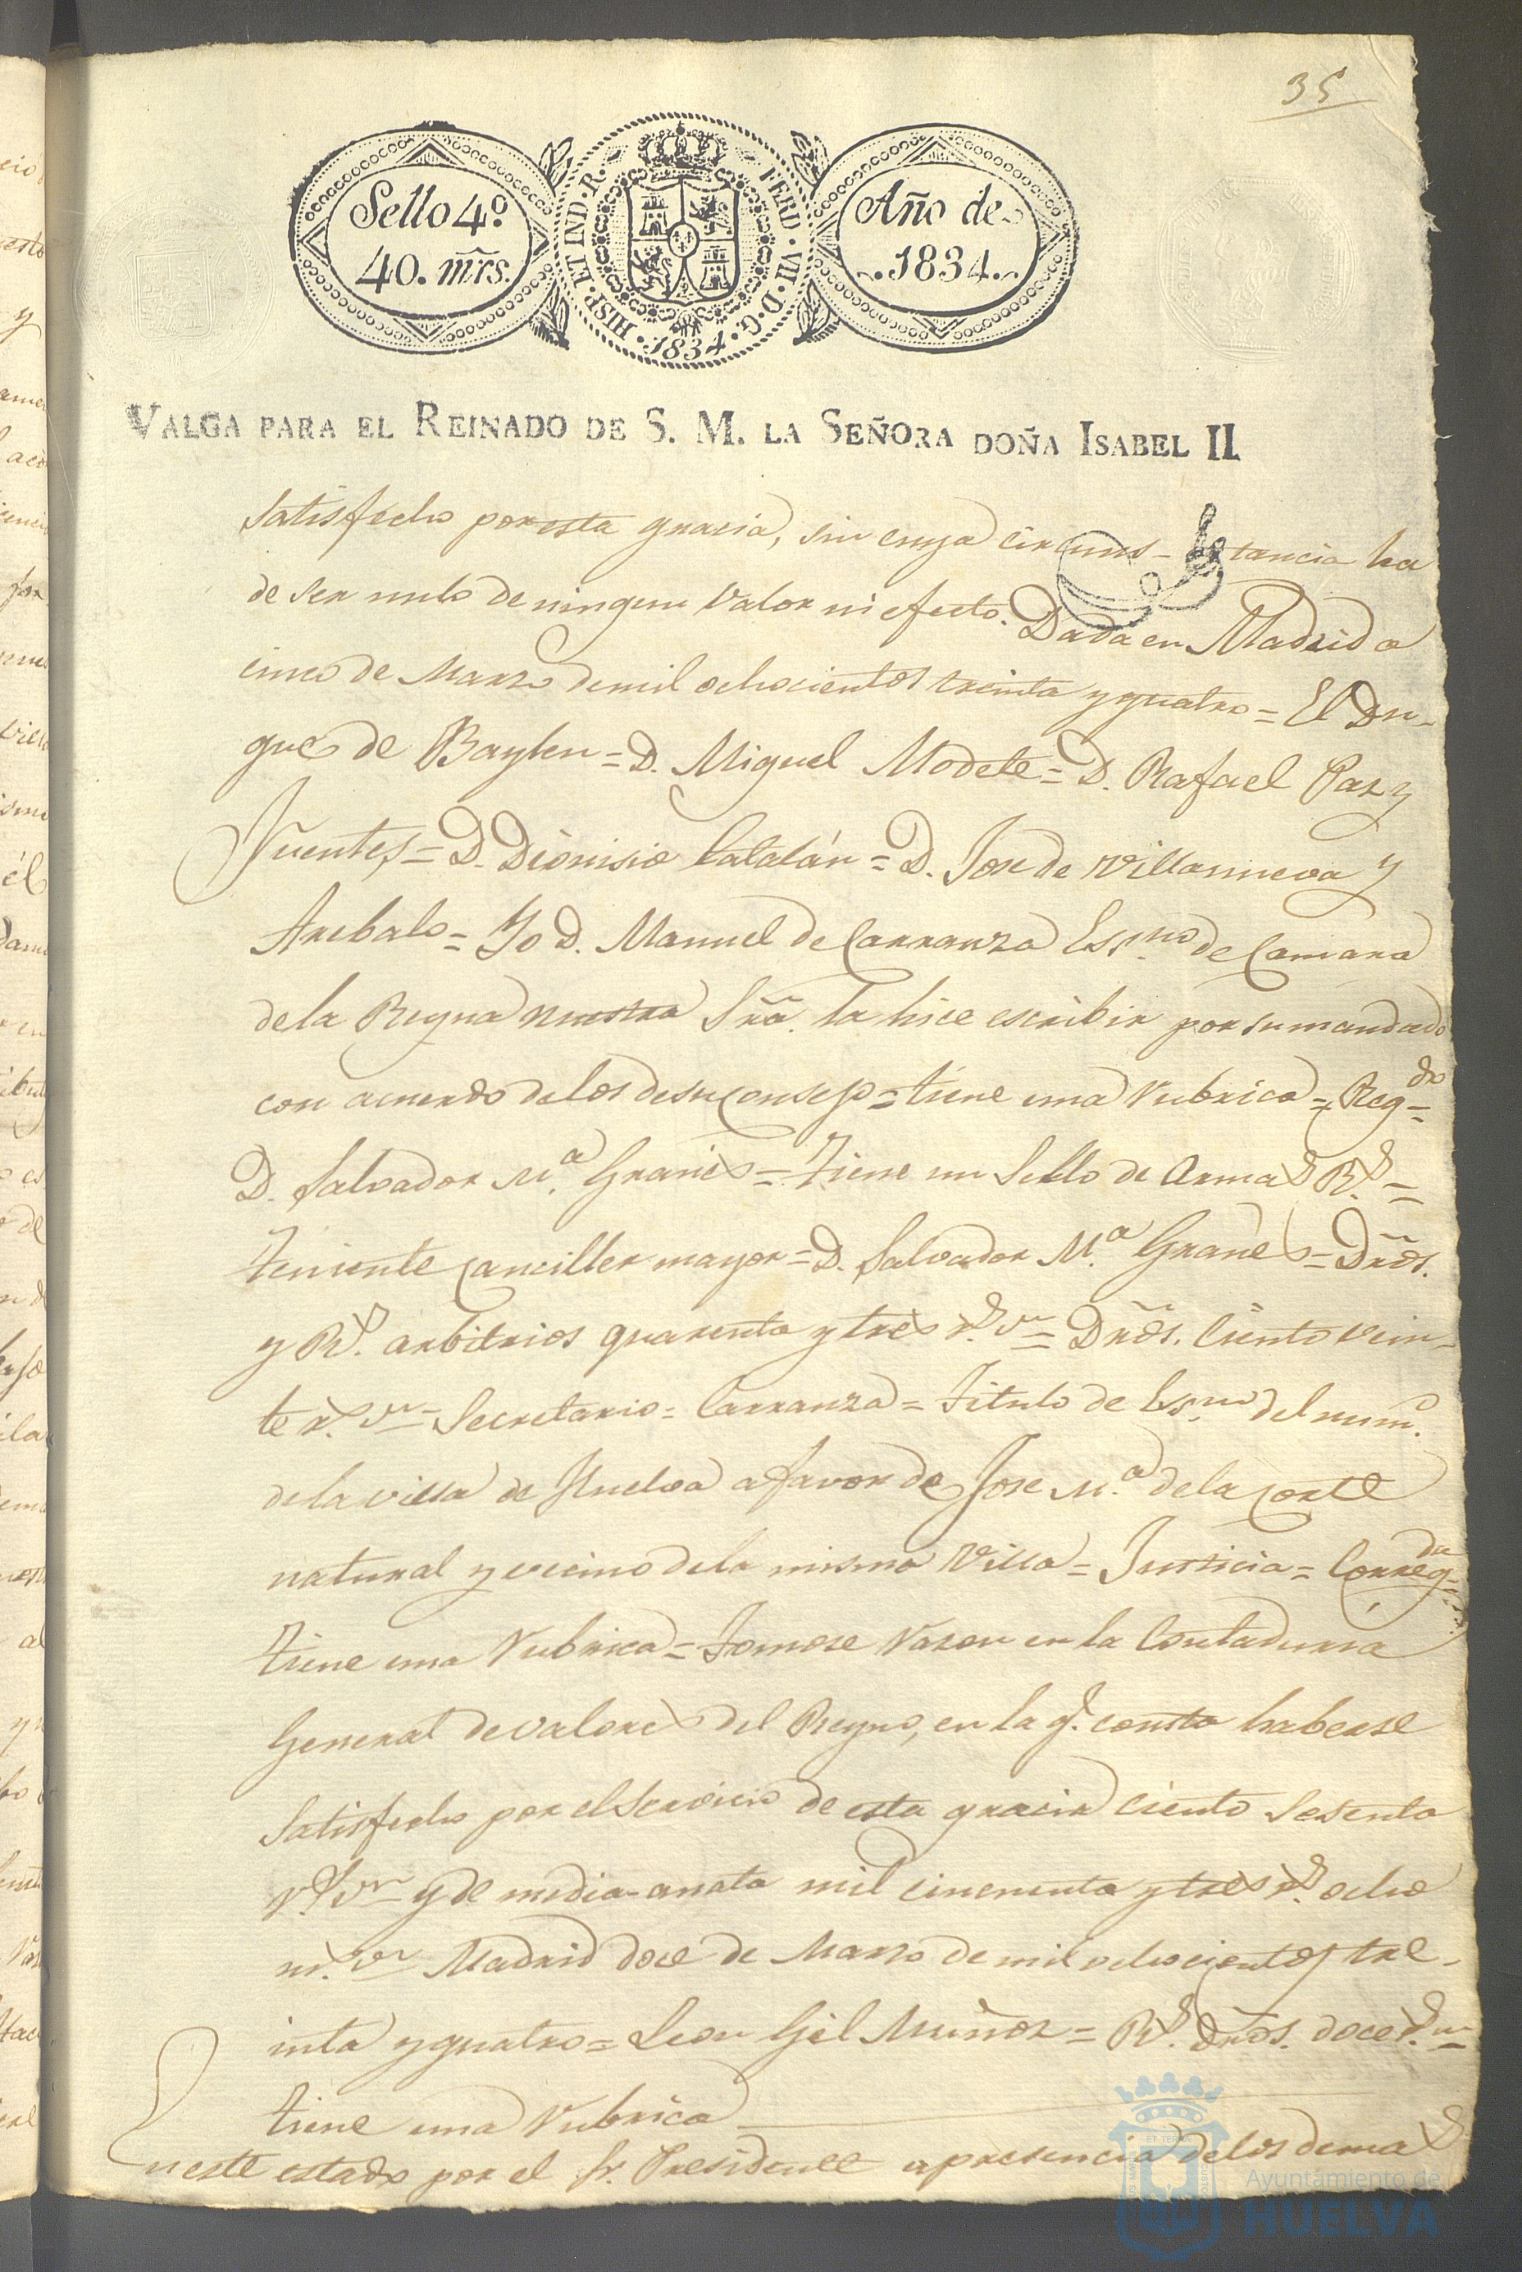 35
Sello 4º
40. mr̃s.
HISP. ET IND. R. FERD. VII. D. G. 1834.
Año de
1834.
VALGA PARA EL REINADO DE S. M. LA SEÑORA DOÑA ISABEL II.
satisfecho por esta gracia, sin cuya circuns-tancia ha
de ser nulo de ningun valor ni efecto. Dada en Madrid a
cinco de Marzo de mil ochocientos treinta y quatro = El Du-
que de Baylen = D. Miguel Modete = D. Rafael Paz y
Fuentes = D. Dionisio Catalán = D. Jose de Villanueva y
Arebalo = Yo D. Manuel de Carranza Esc.no de Camara
de la Reyna nuestra Srã. la hice escribir por su mandado
con acuerdo de los de su Consejo = tiene una rubrica = Reg.do =
D. Salvador M.a Granés = Tiene un Sello de Armas R.s =
Teniente Canciller mayor = D. Salvador M.a Granés = Dr̃os.
y R.s arbitrios quarenta y tres r.s vn = Dr̃os. ciento vein-
te r.s vn = Secretario = Carranza = Titulo de Es.no del num.o
de la villa de Huelva a favor de Jose M.a de la Corte
natural y vecino de la misma Villa = Justicia = Correg.da =
tiene una rubrica = Tomose razon en la Contaduria
General de valores del Reyno, en la q.e consta haberse
satisfecho por el servicio de esta gracia ciento sesenta
r.s vn y de media-anata mil cincuenta y tres r.s ocho
m.s vn Madrid doce de Marzo de mil ochocientos tre-
inta y quatro = Leon Gil Muñoz = R.s Dr̃os. doce r.s vn =
tiene una rubrica
n este estado por el Sr. Presidente a presencia de los demas
Ayuntamiento de
HUELVA